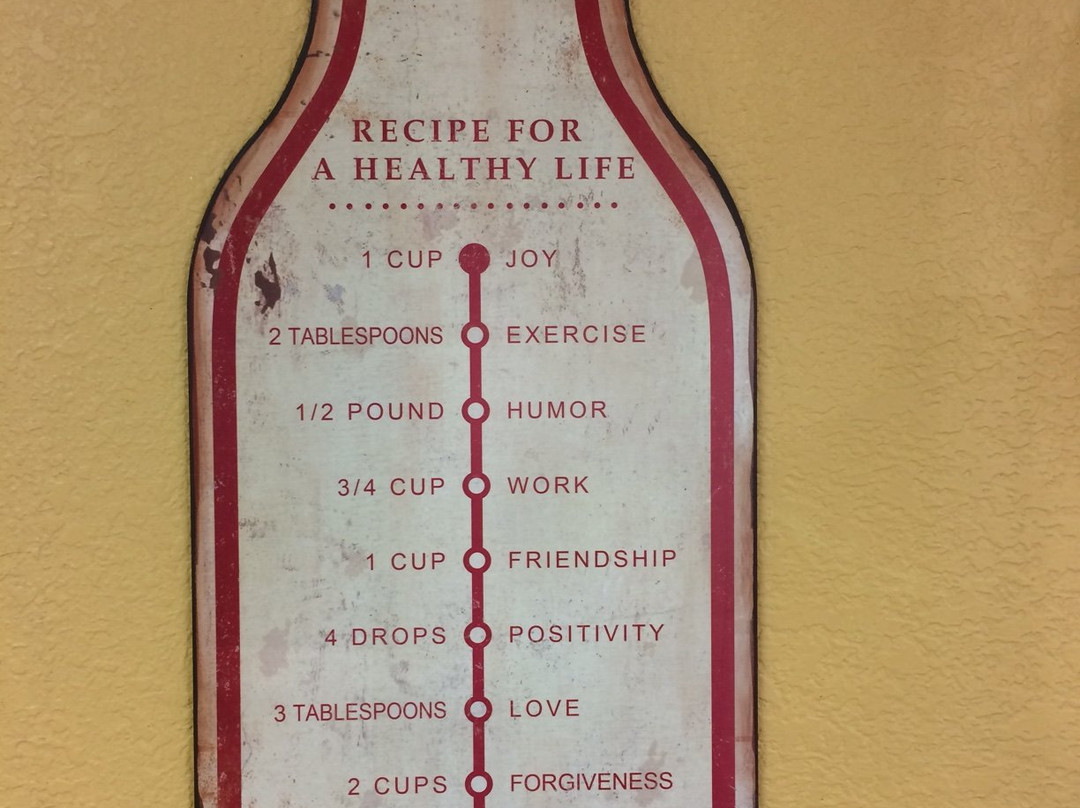 RECIPE FOR
A HEALTHY LIFE
1 CUP JOY
2 TABLESPOONS EXERCISE
1/2 POUND HUMOR
3/4 CUP WORK
1 CUP FRIENDSHIP
4 DROPS POSITIVITY
3 TABLESPOONS LOVE
2 CUPS FORGIVENESS